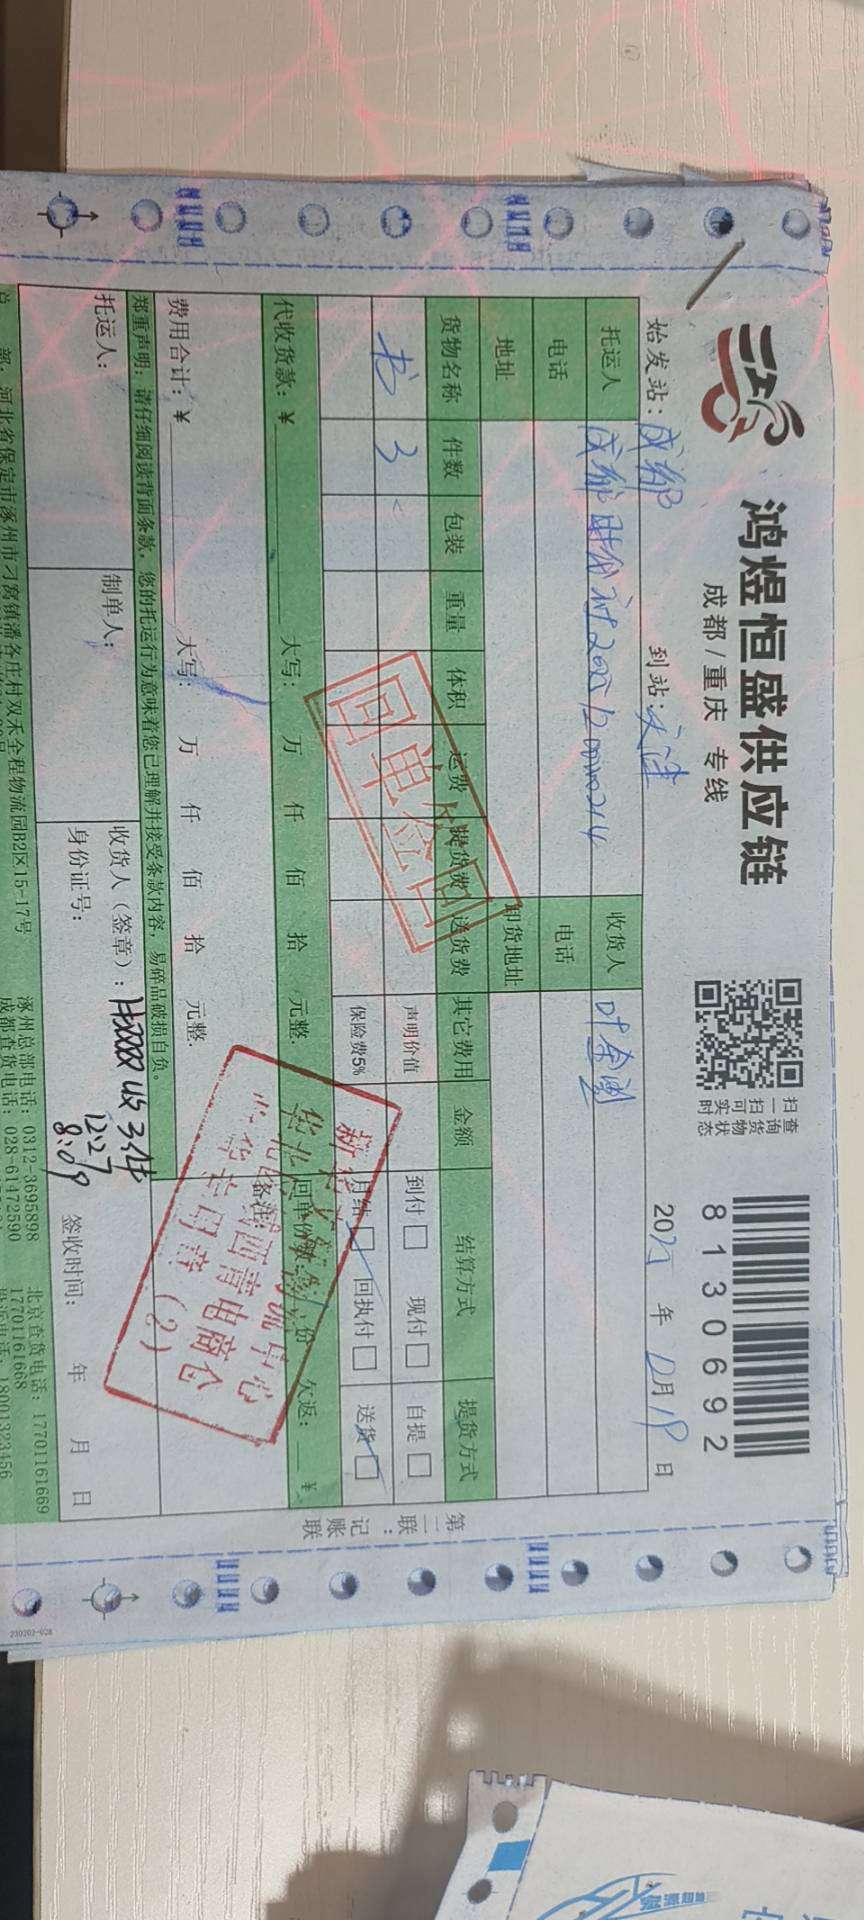 鸿煜恒盛供应链
成都/重庆 专线
扫一扫可实时
查询货物状态
8130692
始发站：成都 到站：天津 2025年12月19日
托运人 成都时代 收货人 叶奎渊
电话 电话
地址 卸货地址
货物名称 件数 包装 重量 体积 运费 提货费 送货费 其它费用 金额 结算方式 提货方式
书 3 声明价值 到付 现付 自提
保险费5% 月结 回执付 送货
回单签回
代收货款：￥ 大写： 万 仟 佰 拾 元整. 回单份数： 份 欠返： ￥
费用合计：￥ 大写： 万 仟 佰 拾 元整. 备注：
郑重声明：请仔细阅读背面条款，您的托运行为意味着您已理解并接受条款内容，易碎品破损自负。
西青电商仓
(2)
托运人： 制单人： 收货人（签章）： 收3件
身份证号： 12.27 8:09 签收时间： 年 月 日
部：河北省保定市涿州市刁窝镇潘各庄村双禾全程物流园B2区15-17号 涿州总部电话：0312-3695898 北京查货电话：17701161669
17701161668
成都查货电话：028-61472590 18001323456
第二联：记账联
230203-028